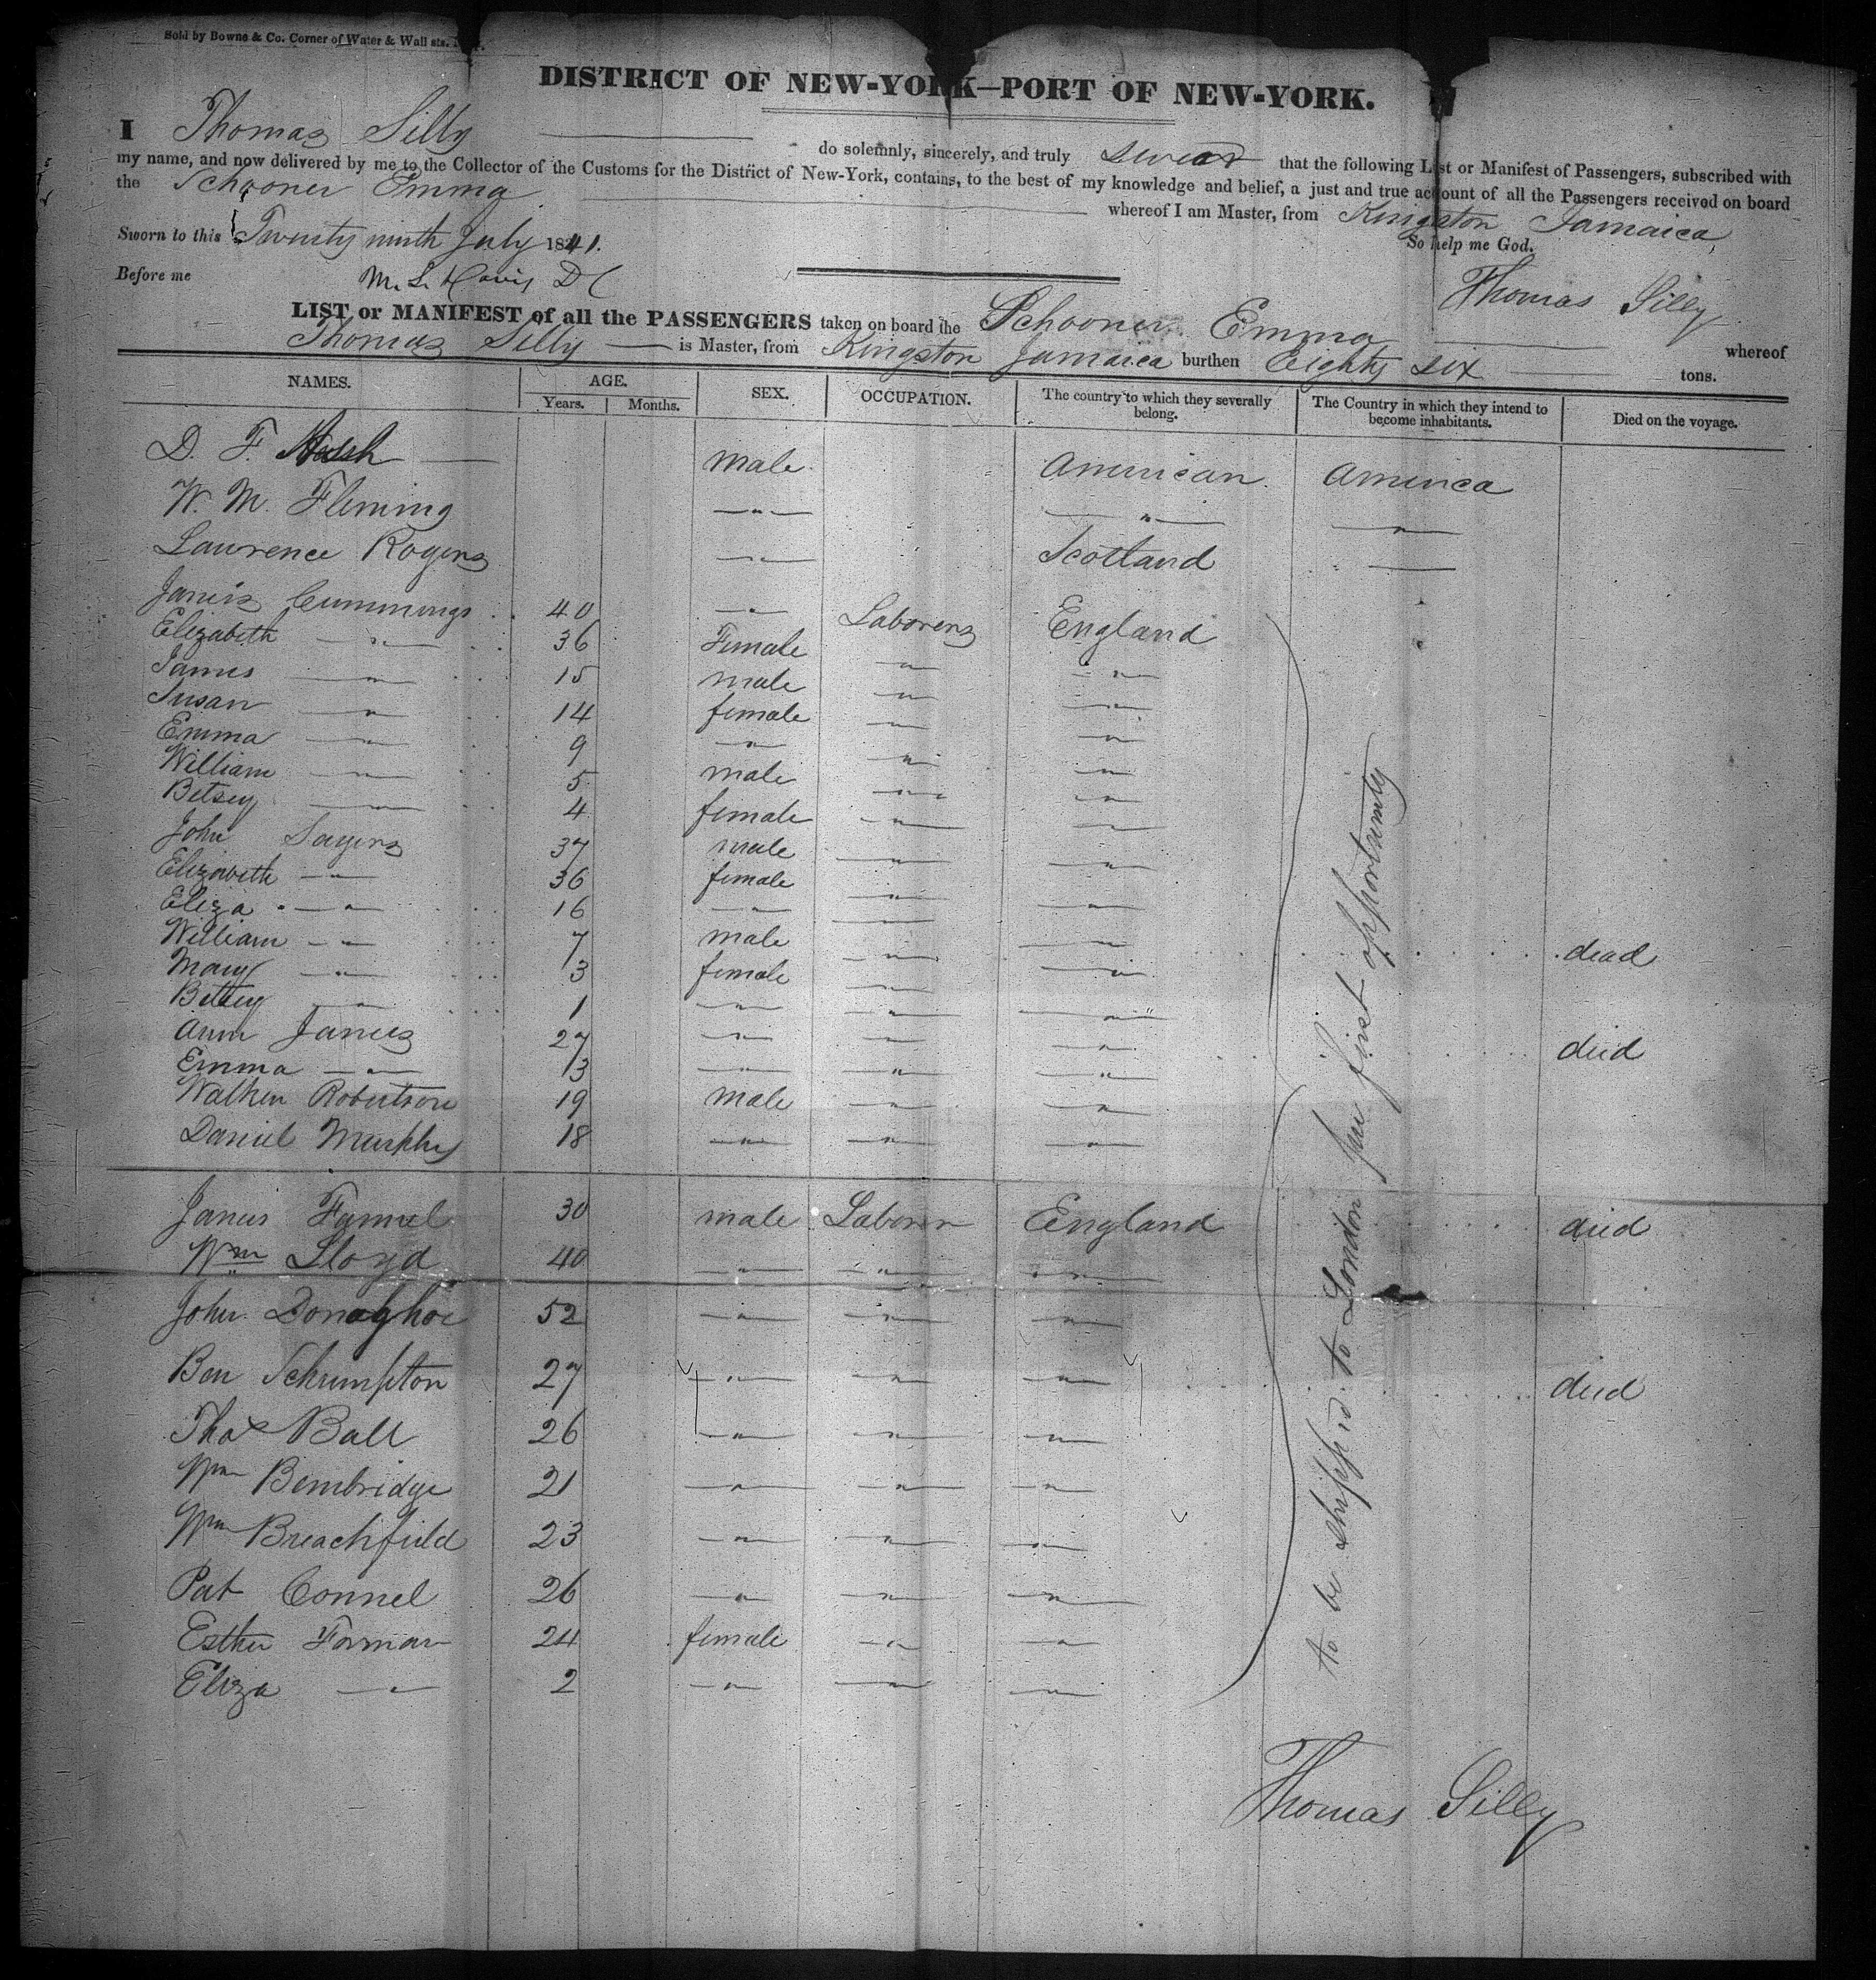 Sold by Bowne & Co. Corner of Water & Wall sts.
DISTRICT OF NEW-YORK—PORT OF NEW-YORK.
I Thomas Silly do solemnly, sincerely, and truly swear that the following List or Manifest of Passengers, subscribed with
my name, and now delivered by me to the Collector of the Customs for the District of New-York, contains, to the best of my knowledge and belief, a just and true account of all the Passengers received on board
the Schooner Emma whereof I am Master, from Kingston Jamaica
Sworn to this Twenty ninth July 1841. So help me God.
Before me Thomas Silly
LIST or MANIFEST of all the PASSENGERS taken on board the Schooner Emma whereof
Thomas Silly is Master, from Kingston Jamaica burthen Eighty six tons.
NAMES. AGE. Years. Months. SEX. OCCUPATION. The country to which they severally belong. The Country in which they intend to become inhabitants. Died on the voyage.
D. F. male American America
W. M. Fleming " " "
Lawrence Rogers " Scotland "
James Cummings 40 " Laborers England
Elizabeth " 36 Female " "
James " 15 male " "
Susan " 14 female " "
Emma " 9 " " "
William " 5 male " "
Betsey " 4 female " "
John Sayers 37 male " "
Elizabeth " 36 female " "
Eliza " 16 " " "
William " 7 male " " dead
Mary " 3 female " "
Betsey " 1 " " "
Ann James 27 " " " died
Emma " 13 " " "
Walker Robertson 19 male " "
Daniel Murphy 18 " " "
James 30 male Laborer England died
Wm Lloyd 40 " " "
John Donaghoe 52 " " "
Ben Schrimpton 27 " " " died
Thos Ball 26 " " "
Wm Bembridge 21 " " "
Wm Breachfield 23 " " "
Pat Connel 26 " " "
Esther Forman 24 female " "
Eliza " 2 " " "
to be shipped to London per first opportunity
Thomas Silly